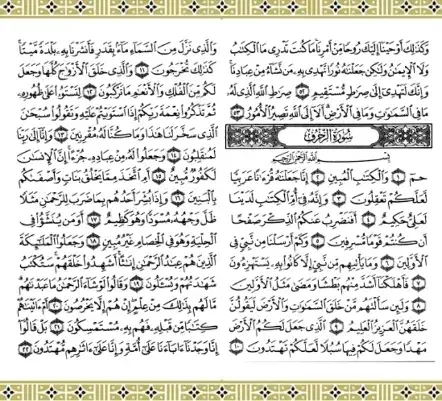 وَكَذَٰلِكَ أَوْحَيْنَآ إِلَيْكَ رُوحًا مِّنْ أَمْرِنَا مَا كُنتَ تَدْرِى مَا ٱلْكِتَٰبُ
وَلَا ٱلْإِيمَٰنُ وَلَٰكِن جَعَلْنَٰهُ نُورًا نَّهْدِى بِهِۦ مَن نَّشَآءُ مِنْ عِبَادِنَا
وَإِنَّكَ لَتَهْدِىٓ إِلَىٰ صِرَٰطٍ مُّسْتَقِيمٍ ٥٢ صِرَٰطِ ٱللَّهِ ٱلَّذِى لَهُۥ
مَا فِى ٱلسَّمَٰوَٰتِ وَمَا فِى ٱلْأَرْضِ أَلَآ إِلَى ٱللَّهِ تَصِيرُ ٱلْأُمُورُ ٥٣
سُورَةُ الزُّخْرُفِ
بِسْمِ ٱللَّهِ ٱلرَّحْمَٰنِ ٱلرَّحِيمِ
حمٓ ١ وَٱلْكِتَٰبِ ٱلْمُبِينِ ٢ إِنَّا جَعَلْنَٰهُ قُرْءَٰنًا عَرَبِيًّا
لَّعَلَّكُمْ تَعْقِلُونَ ٣ وَإِنَّهُۥ فِىٓ أُمِّ ٱلْكِتَٰبِ لَدَيْنَا
لَعَلِىٌّ حَكِيمٌ ٤ أَفَنَضْرِبُ عَنكُمُ ٱلذِّكْرَ صَفْحًا
أَن كُنتُمْ قَوْمًا مُّسْرِفِينَ ٥ وَكَمْ أَرْسَلْنَا مِن نَّبِىٍّ فِى
ٱلْأَوَّلِينَ ٦ وَمَا يَأْتِيهِم مِّن نَّبِىٍّ إِلَّا كَانُوا۟ بِهِۦ يَسْتَهْزِءُونَ
٧ فَأَهْلَكْنَآ أَشَدَّ مِنْهُم بَطْشًا وَمَضَىٰ مَثَلُ ٱلْأَوَّلِينَ
٨ وَلَئِن سَأَلْتَهُم مَّنْ خَلَقَ ٱلسَّمَٰوَٰتِ وَٱلْأَرْضَ لَيَقُولُنَّ
خَلَقَهُنَّ ٱلْعَزِيزُ ٱلْعَلِيمُ ٩ ٱلَّذِى جَعَلَ لَكُمُ ٱلْأَرْضَ
مَهْدًا وَجَعَلَ لَكُمْ فِيهَا سُبُلًا لَّعَلَّكُمْ تَهْتَدُونَ ١٠
وَٱلَّذِى نَزَّلَ مِنَ ٱلسَّمَآءِ مَآءًۢ بِقَدَرٍ فَأَنشَرْنَا بِهِۦ بَلْدَةً مَّيْتًا
كَذَٰلِكَ تُخْرَجُونَ ١١ وَٱلَّذِى خَلَقَ ٱلْأَزْوَٰجَ كُلَّهَا وَجَعَلَ
لَكُم مِّنَ ٱلْفُلْكِ وَٱلْأَنْعَٰمِ مَا تَرْكَبُونَ ١٢ لِتَسْتَوُۥا۟ عَلَىٰ ظُهُورِهِۦ
ثُمَّ تَذْكُرُوا۟ نِعْمَةَ رَبِّكُمْ إِذَا ٱسْتَوَيْتُمْ عَلَيْهِ وَتَقُولُوا۟ سُبْحَٰنَ
ٱلَّذِى سَخَّرَ لَنَا هَٰذَا وَمَا كُنَّا لَهُۥ مُقْرِنِينَ ١٣ وَإِنَّآ إِلَىٰ رَبِّنَا
لَمُنقَلِبُونَ ١٤ وَجَعَلُوا۟ لَهُۥ مِنْ عِبَادِهِۦ جُزْءًا إِنَّ ٱلْإِنسَٰنَ
لَكَفُورٌ مُّبِينٌ ١٥ أَمِ ٱتَّخَذَ مِمَّا يَخْلُقُ بَنَاتٍ وَأَصْفَىٰكُم
بِٱلْبَنِينَ ١٦ وَإِذَا بُشِّرَ أَحَدُهُم بِمَا ضَرَبَ لِلرَّحْمَٰنِ مَثَلًا
ظَلَّ وَجْهُهُۥ مُسْوَدًّا وَهُوَ كَظِيمٌ ١٧ أَوَمَن يُنَشَّؤُا۟ فِى
ٱلْحِلْيَةِ وَهُوَ فِى ٱلْخِصَامِ غَيْرُ مُبِينٍ ١٨ وَجَعَلُوا۟ ٱلْمَلَٰٓئِكَةَ
ٱلَّذِينَ هُمْ عِندَ ٱلرَّحْمَٰنِ إِنَٰثًا أَشَهِدُوا۟ خَلْقَهُمْ سَتُكْتَبُ
شَهَٰدَتُهُمْ وَيُسْـَٔلُونَ ١٩ وَقَالُوا۟ لَوْ شَآءَ ٱلرَّحْمَٰنُ مَا عَبَدْنَٰهُم
مَّا لَهُم بِذَٰلِكَ مِنْ عِلْمٍ إِنْ هُمْ إِلَّا يَخْرُصُونَ ٢٠ أَمْ ءَاتَيْنَٰهُمْ
كِتَٰبًا مِّن قَبْلِهِۦ فَهُم بِهِۦ مُسْتَمْسِكُونَ ٢١ بَلْ قَالُوٓا۟
إِنَّا وَجَدْنَآ ءَابَآءَنَا عَلَىٰٓ أُمَّةٍ وَإِنَّا عَلَىٰٓ ءَاثَٰرِهِم مُّهْتَدُونَ ٢٢